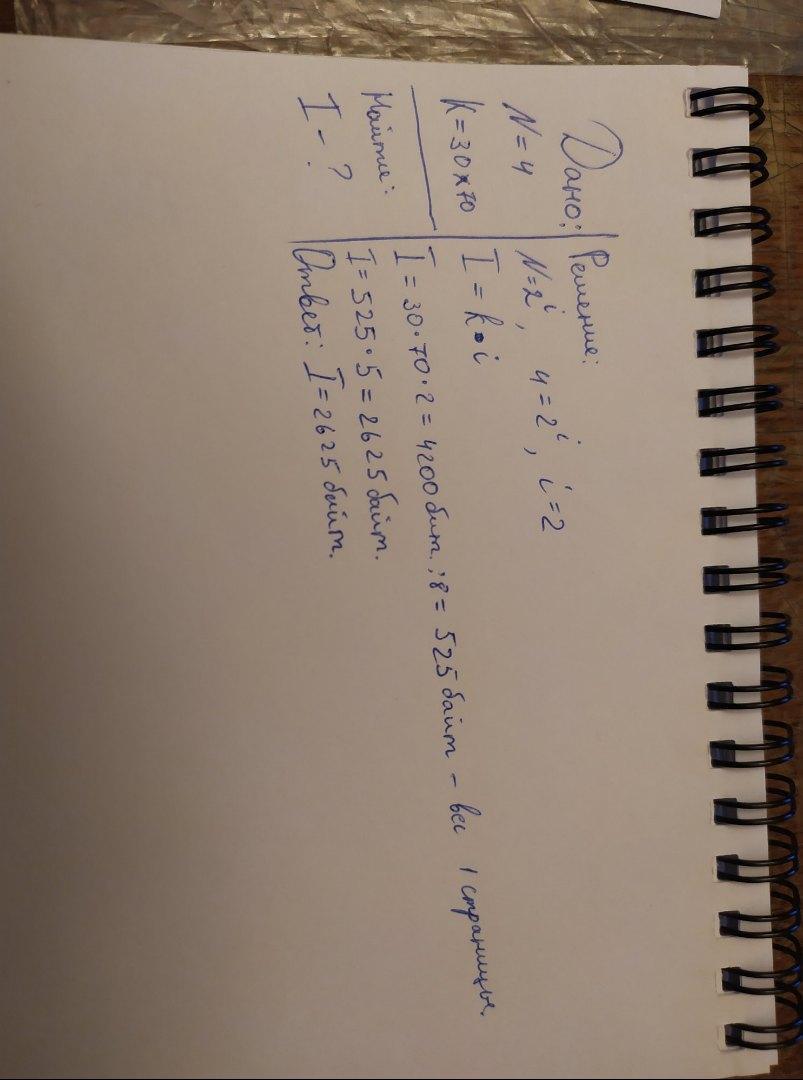 Дано:
N=4
K=30×70
Найти:
I - ?
Решение:
N=2ⁱ, 4=2ⁱ, i=2
I = k•i
I = 30·70·2 = 4200 бит. :8 = 525 байт - вес 1 страницы.
I = 525·5 = 2625 байт.
Ответ: I = 2625 байт.